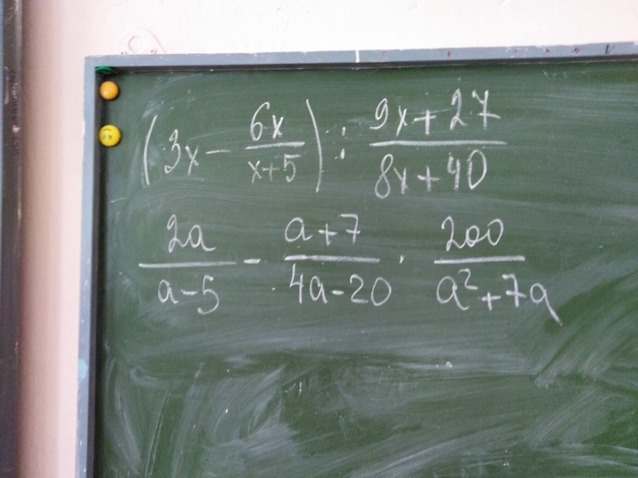 (3x - 6x/(x+5)) : (9x+27)/(8x+40)
2a/(a-5) - (a+7)/(4a-20) · 200/(a²+7a)